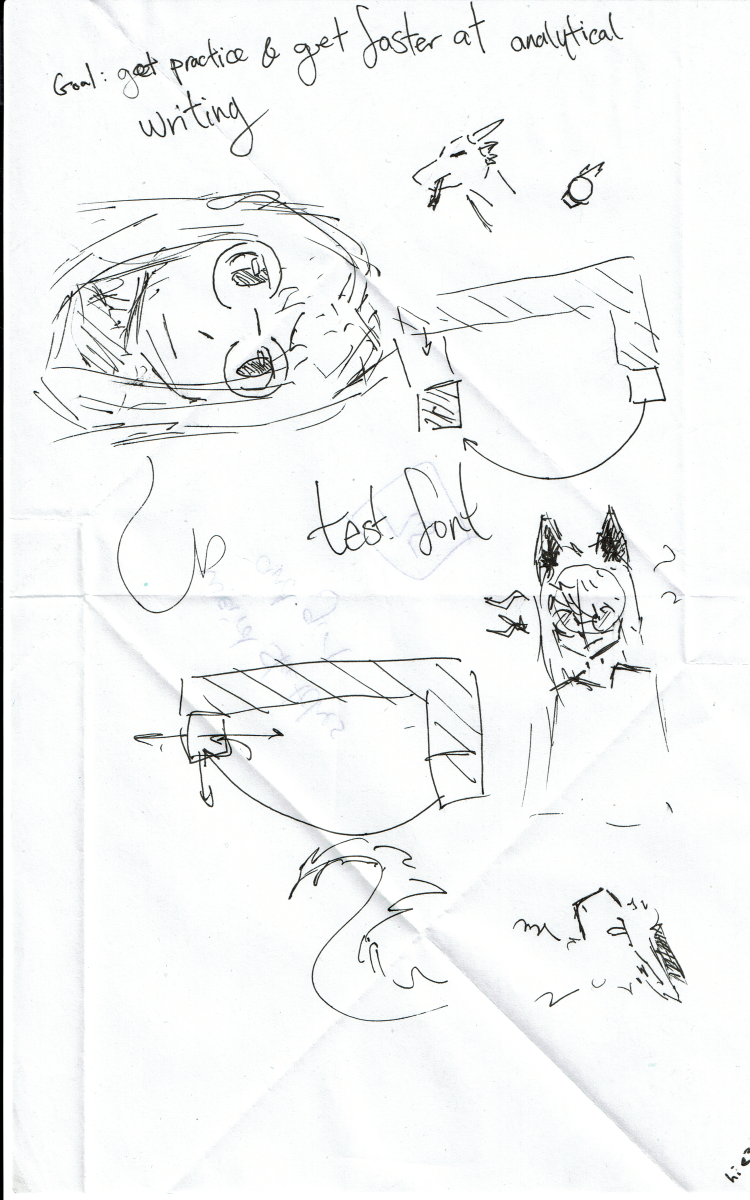 Goal: get practice & get faster at analytical
writing
test font